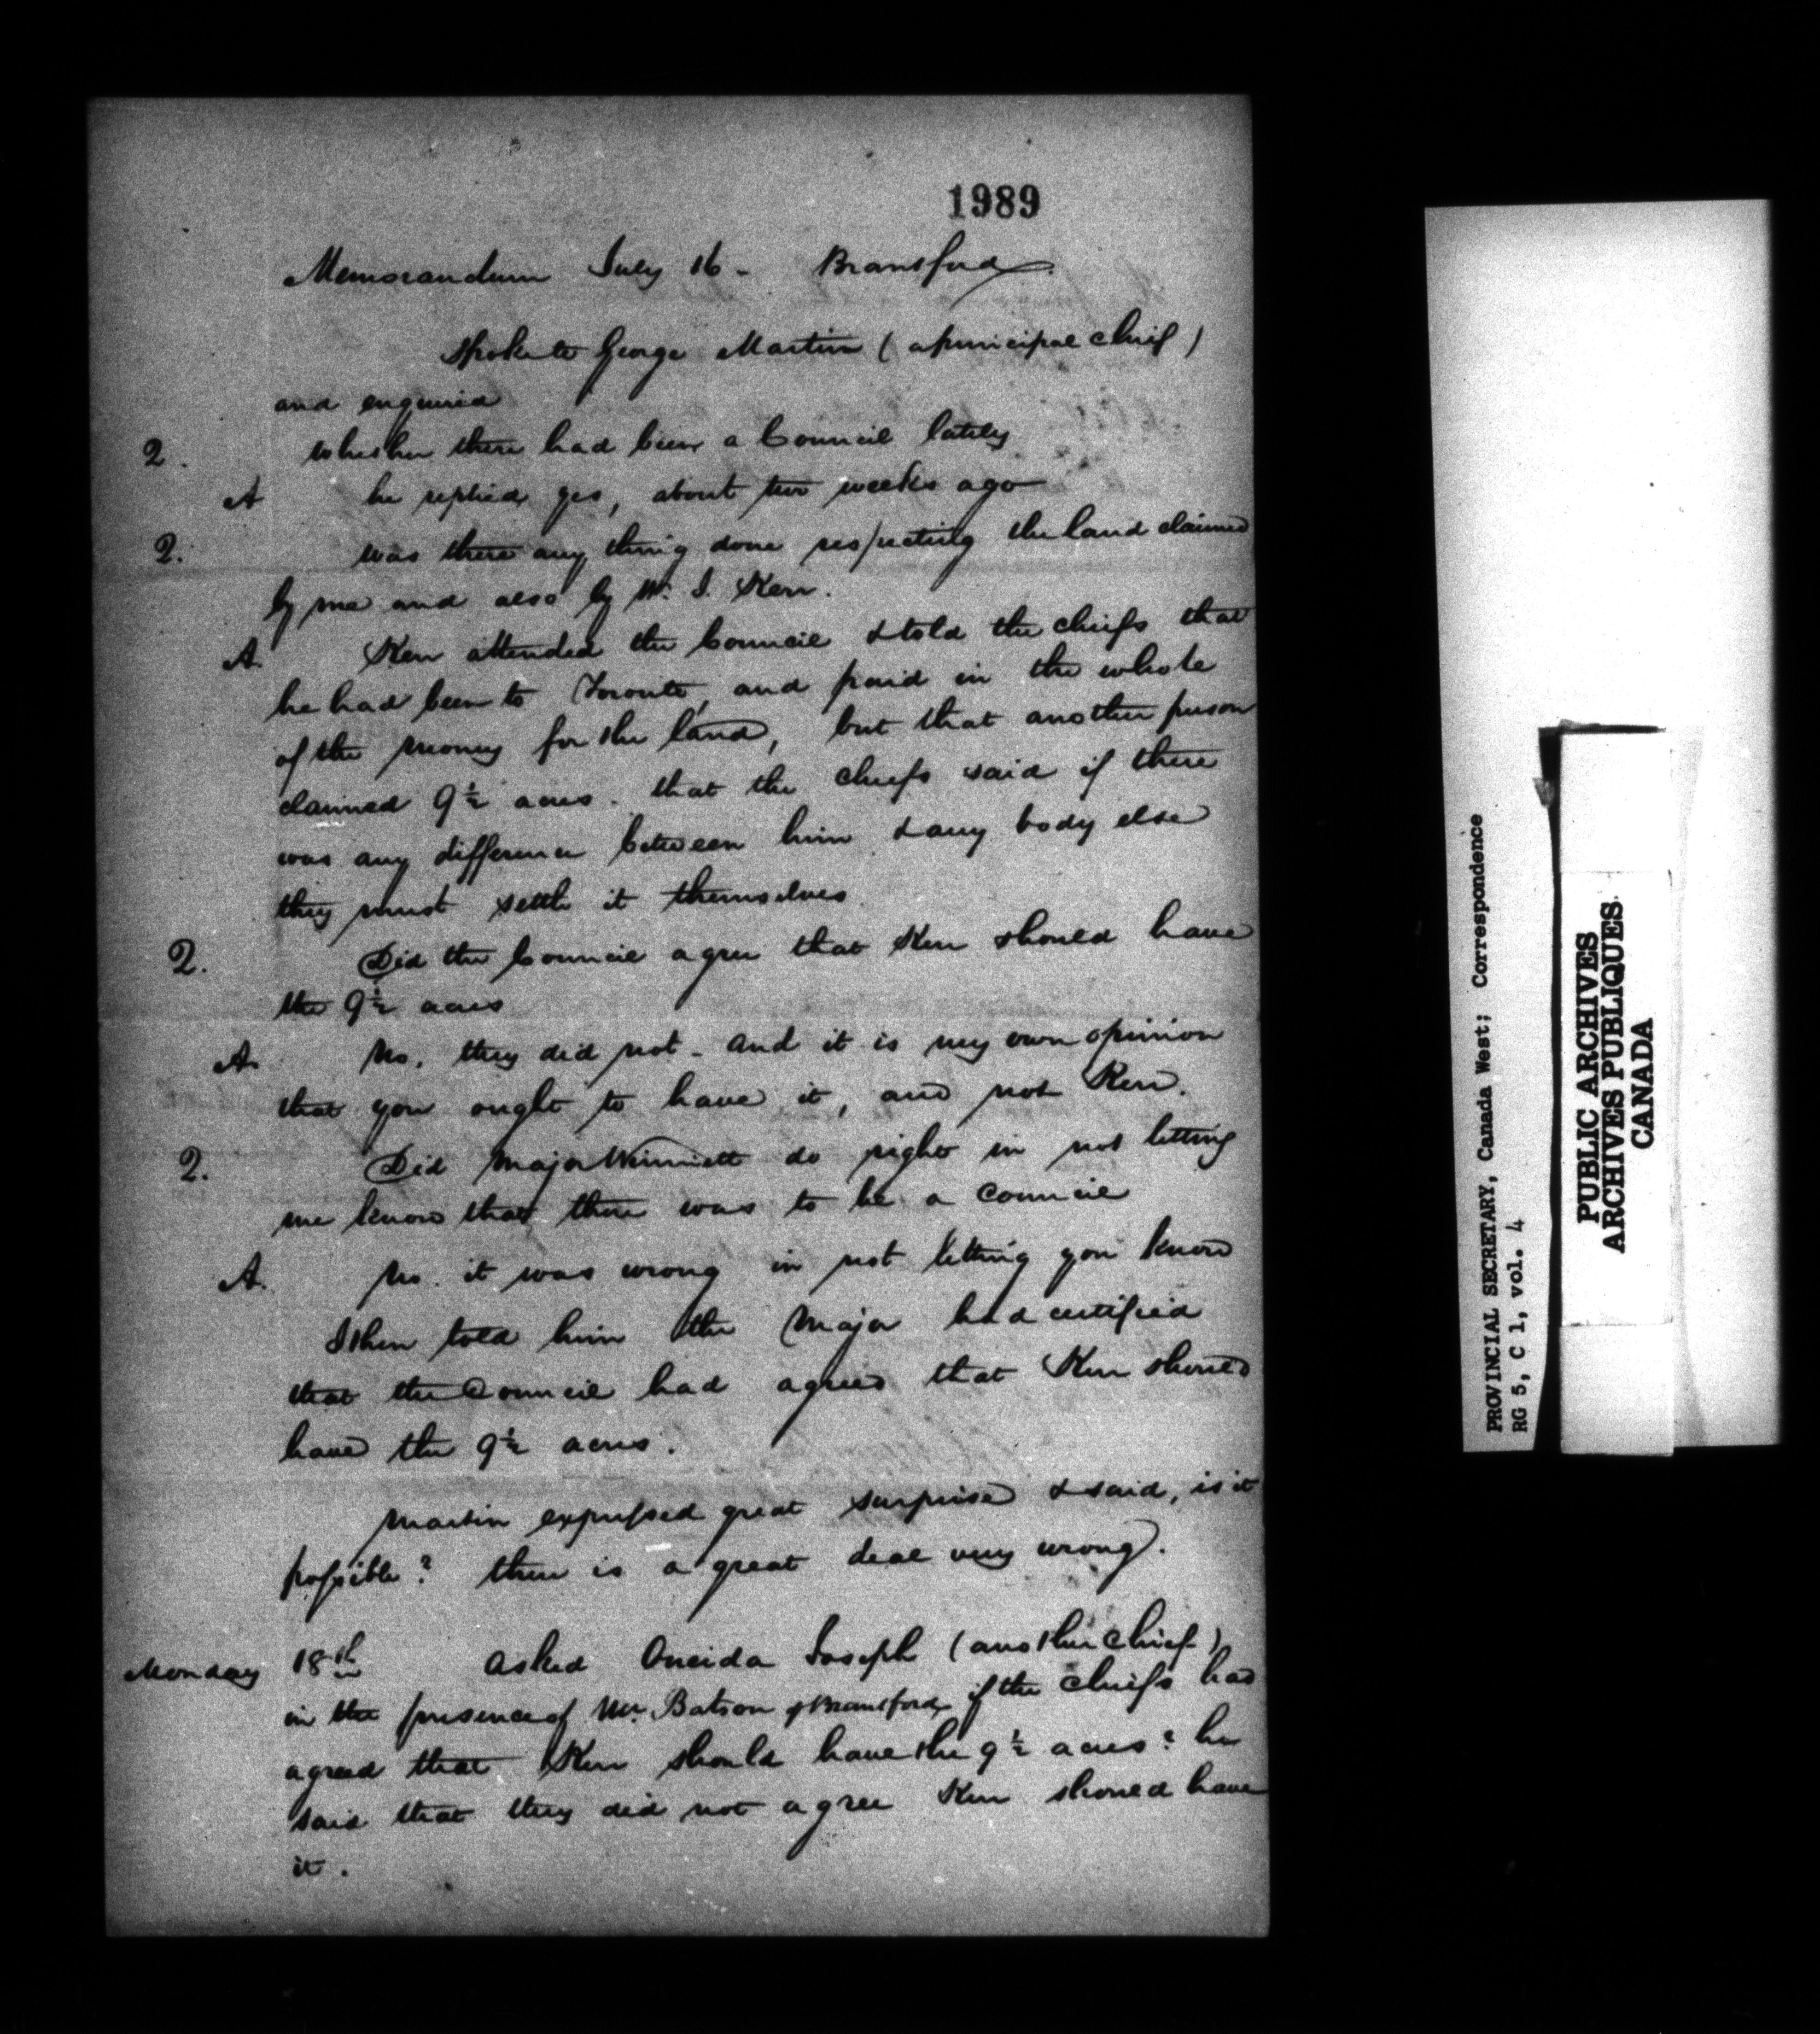 1989
Memorandum July 16 - Brantford
Spoke to George Martin (a principal chief)
and enquired
Q. Whether there had been a Council lately
A he replied yes, about two weeks ago
Q. was there any thing done respecting the land claimed
by me and also by W. J. Kerr.
A. Kerr attended the Council & told the chiefs that
he had been to Toronto, and paid in the whole
of the money for the land, but that another person
claimed 9½ acres. that the chiefs said if there
was any difference between him & any body else
they must settle it themselves
Q. Did the Council agree that Kerr should have
the 9½ acres
A. No. they did not - and it is my own opinion
that you ought to have it, and not Kerr.
Q. Did Major Winniett do right in not letting
me know that there was to be a Council
A. No. it was wrong in not letting you know
I then told him the Major had certified
that the Council had agreed that Kerr should
have the 9½ acres.
Martin expressed great surprise & said, is it
possible? there is a great deal very wrong.
Monday 18th asked Oneida Joseph (another chief)
in the presence of Mr. Batson of Brantford, if the chiefs had
agreed that Kerr should have the 9½ acres? he
said that they did not agree Kerr should have
it.
PROVINCIAL SECRETARY, Canada West; Correspondence
RG 5, C 1, vol. 4
PUBLIC ARCHIVES
ARCHIVES PUBLIQUES
CANADA